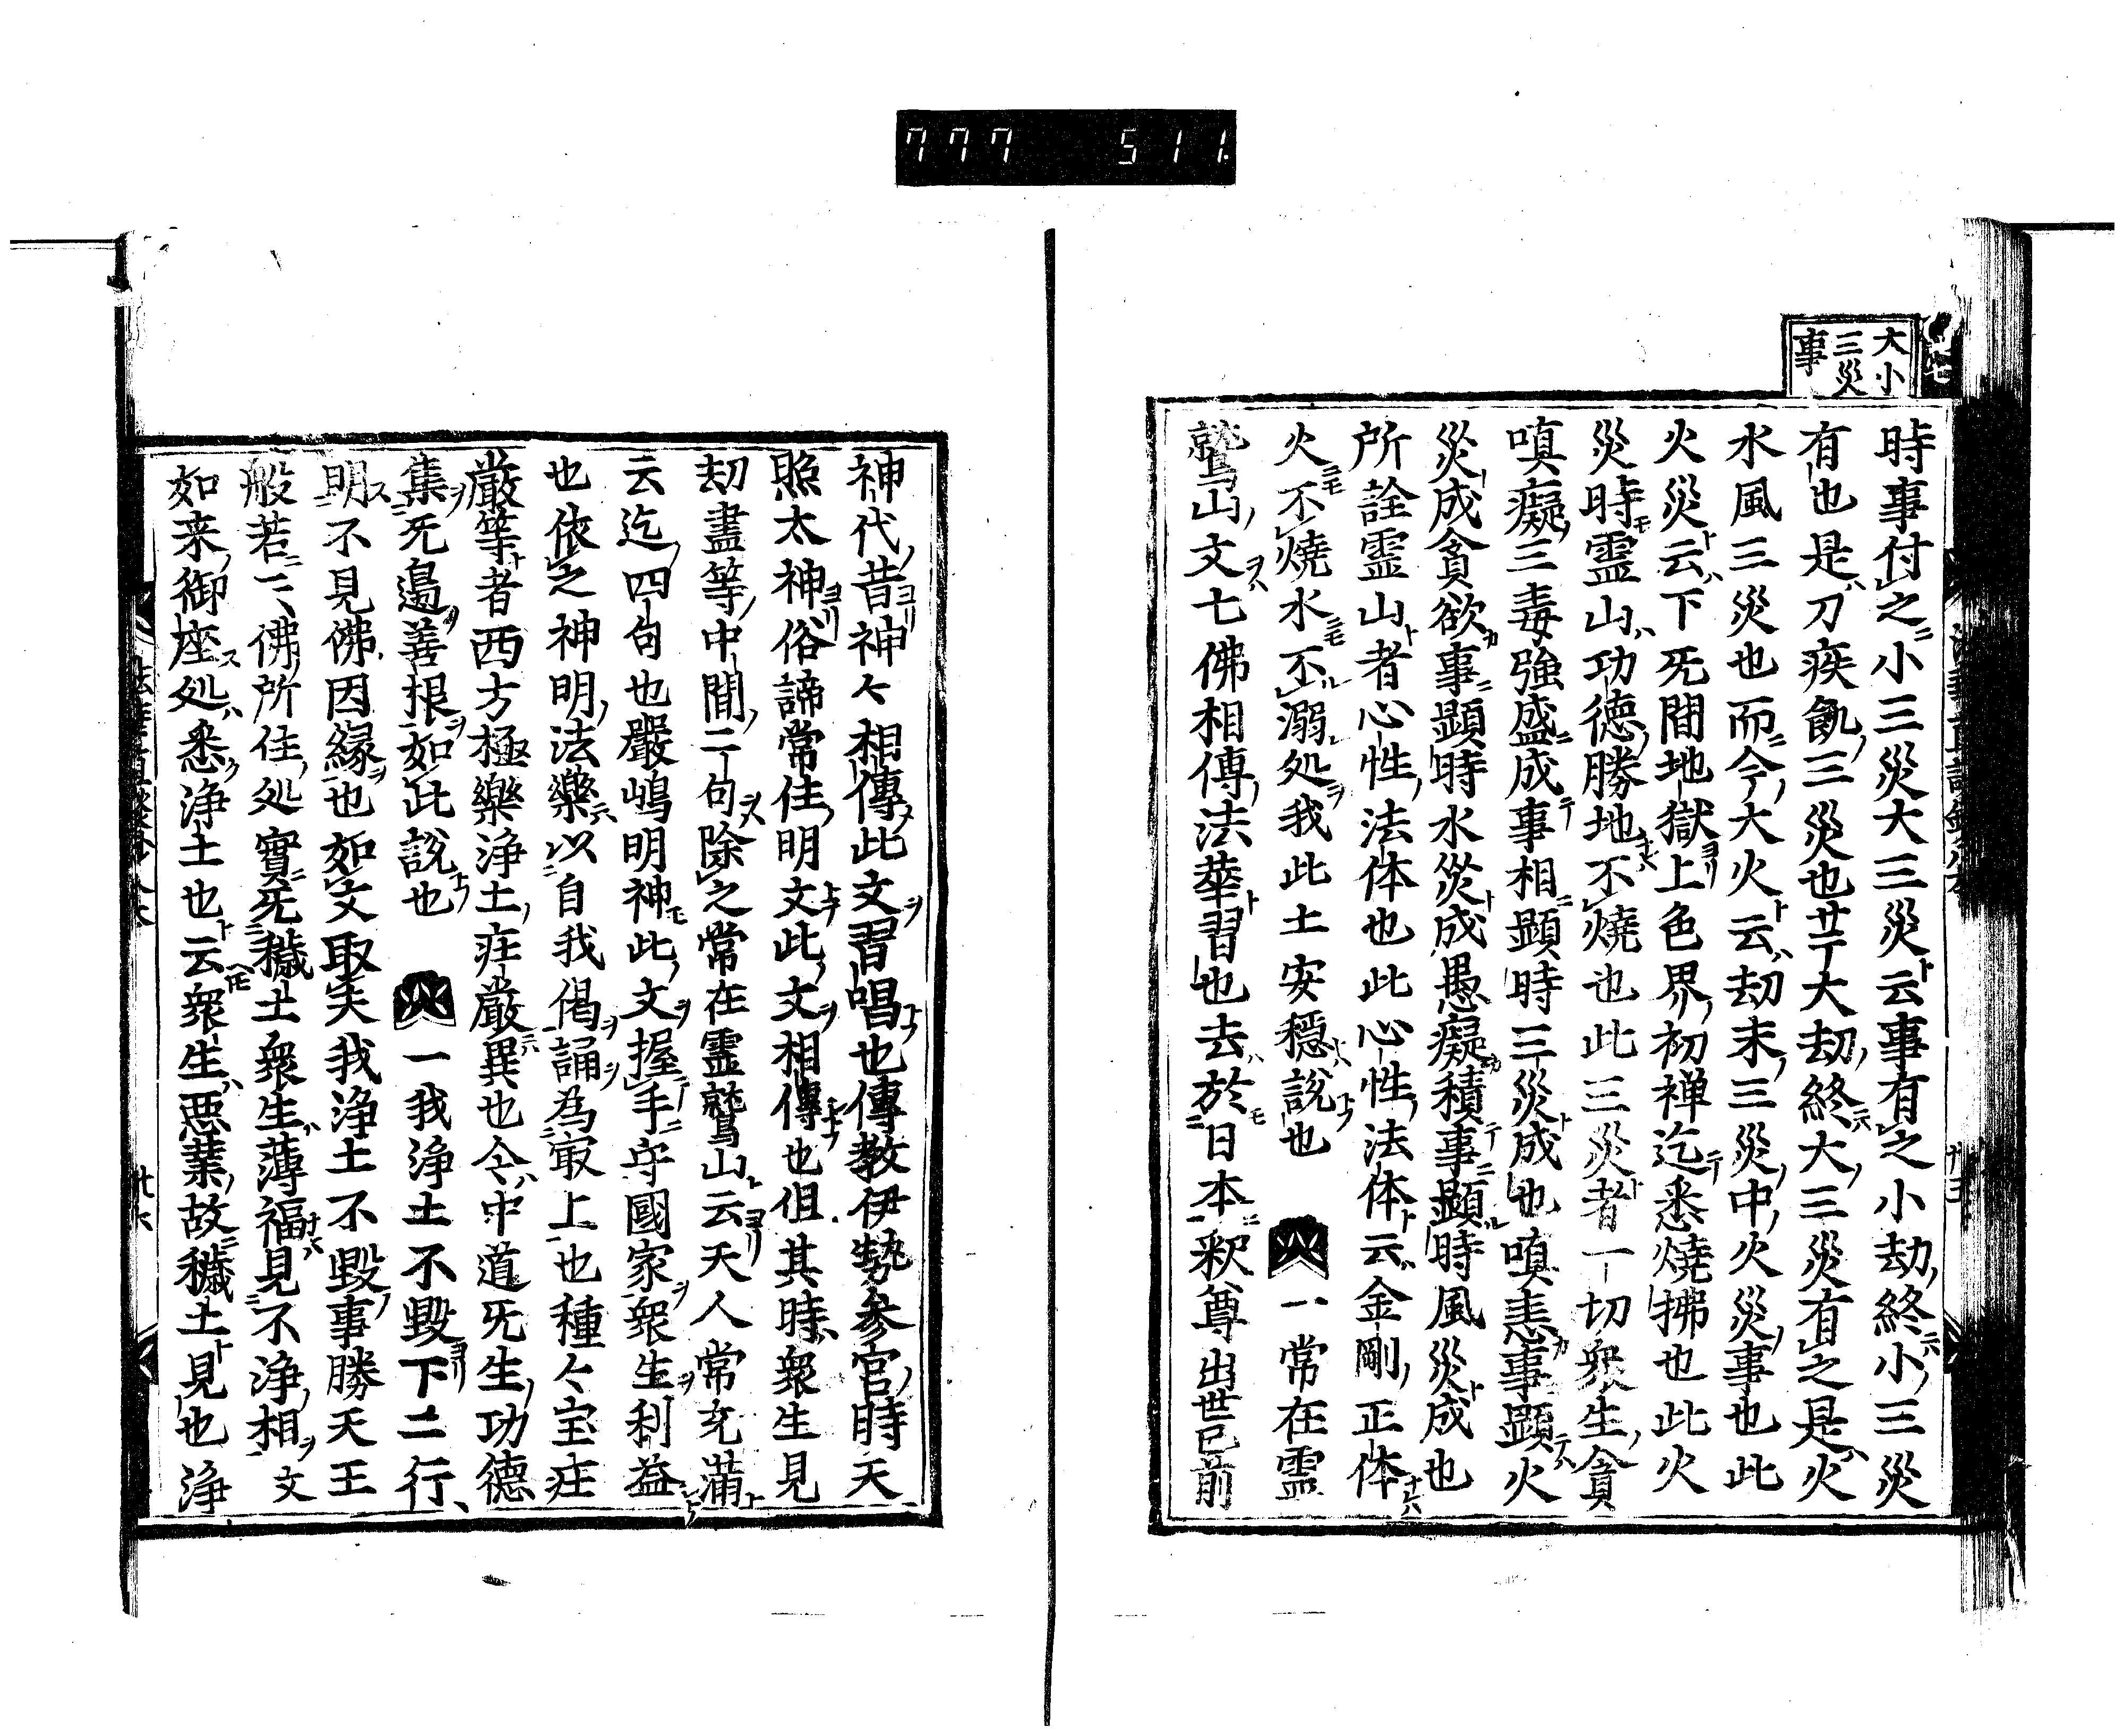 777 511
大小
三災
事
時事付之小三災大三災云事有之小劫終小三災
有也是刀疾飢三災也廿丁大劫終大三災有之是火
水風三災也而今大火云劫末三災中火災事也此
火災云下旡間地獄上色界初禅迄悉焼拂也此火
災時霊山功徳勝地不焼也此三災者一切衆生貪
嗔癡三毒強盛成事相顕時三災成也嗔恚事顕火
災成貪欲事顕時水災成愚癡積事顕時風災成也
所詮霊山者心性法体也此心性法体云金剛正体
火不焼水不溺処我此土安穏説也 一常在霊
鷲山文七佛相傳法華習也去於日本釈尊出世已前
神代昔神々相傳此文習唱也傳教伊勢参宮時天
照太神俗諦常住明文此文相傳也但其時衆生見
劫盡等中間二句除之常在霊鷲山云天人常充満
云迄四句也嚴嶋明神此文握手守國家衆生利益
也依之神明法樂以自我偈誦為冣上也種々宝荘
厳等者西方極樂浄土荘厳異也今中道旡生功徳
集旡邉善根如此説也 一我浄土不毀下二行
明不見佛因縁也如文取夫我浄土不毀事勝天王
般若ニ佛所住処實旡穢土衆生薄福見不浄相文
如来御座処悉浄土也云衆生惡業故穢土見也浄
廿六